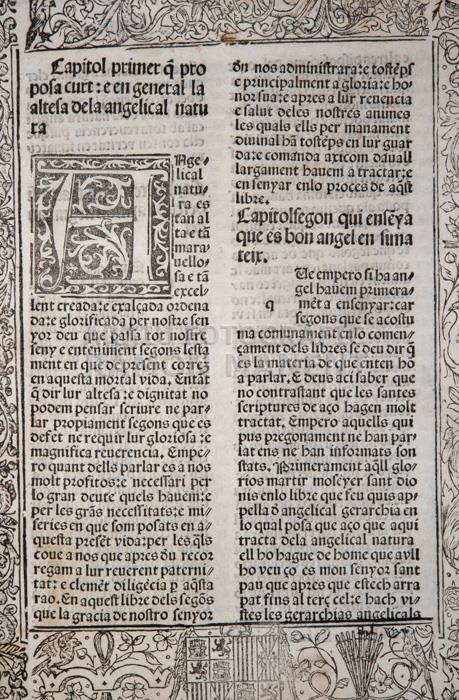 Capitol primer q̄ pro
posa curt: e en general la
altesa dela angelical natu
ra
ANge⸗
lical
natu⸗
ra es
tan al
ta e tā
mara⸗
uello⸗
sa e tā
excel⸗
lent creada: e exalçada ordena
da: e glorificada per nostre sen
yor deu que passa tot nostre
seny e enteniment segons lesta
ment en que de present corren
en aquesta mortal vida. Entāt
q̄ dir lur altesa: e dignitat no
podem pensar scriure ne par⸗
lar propiament segons que es
defet ne requir lur gloriosa: e
magnifica reuerencia. Empe⸗
ro quant dells parlar es a nos
molt profitos: e necessari per
lo gran deute quels hauem: e
per les grās necessitats: e mi⸗
series en que som posats en a⸗
questa presēt vida: per les q̄ls
coue a nos que apres ðu recor
regam a lur reuerent paterni⸗
tat: e clemēt diligēcia p aq̄sta
rao. En aquest libre dels segōs
que la gracia de nostro senyor
ðn nos administrara: e tostēps
e principalment a gloria: e ho⸗
nor sua: e apres a lur reuencia
e salut deles nostres animes
les quals ells per manament
diuinal hā tostēps en lur guar
da: e comanda axicom dauall
largament hauem a tractar: e
ensenyar enlo proces de aq̄st
libre.
Capitol segon qui enseya
que es bon angel en suna
teix.
Ue empero si ha an⸗
gel hauem primera⸗
q
mēt a ensenyar: car
segons que se acostu
ma comunament enlo comen⸗
çament dels libres se deu dir q̄
es la materia de que enten hō
a parlar. E deus aci saber que
no contrastant que les santes
scriptures de aço hagen molt
tractat. Empero aquells qui
pus pregonament ne han par⸗
lat ens ne han informats son
stats. Primerament aq̄ll glo⸗
rios martir mosēyer sant dio
nis enlo libre que feu quis ap⸗
pella ð angelical gerarchia en
lo qual posa que aço que aqui
tracta dela angelical natura
ell ho hague de home que auil
ho veu ço es mon senyor sant
pau que apres que estech arra
pat fins al terç cel: e hach vi⸗
stes les gerarchias angelicals